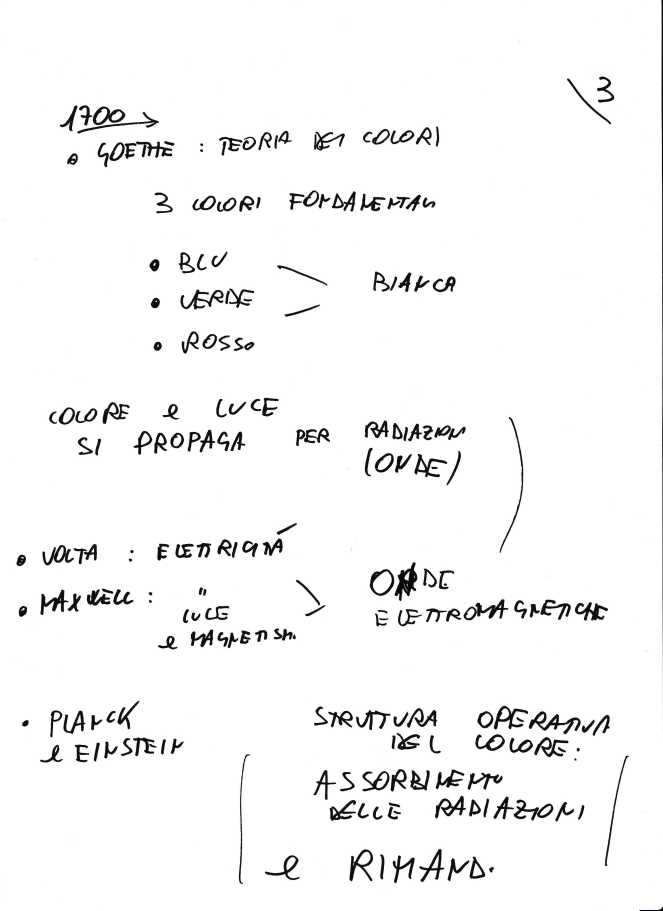 3
1700 →
• GOETHE : TEORIA DEI COLORI
3 COLORI FONDAMENTALI
• BLU
• VERDE
BIANCA
• ROSSO
COLORE e LUCE
SI PROPAGA PER RADIAZIONI
(ONDE)
• VOLTA : ELETTRICITÀ
• MAXWELL : "
LUCE
e MAGNETISM.
ONDE
ELETTROMAGNETICHE
• PLANCK
e EINSTEIN
STRUTTURA OPERATIVA
DEL COLORE:
ASSORBIMENTO
DELLE RADIAZIONI
e RIMAND.